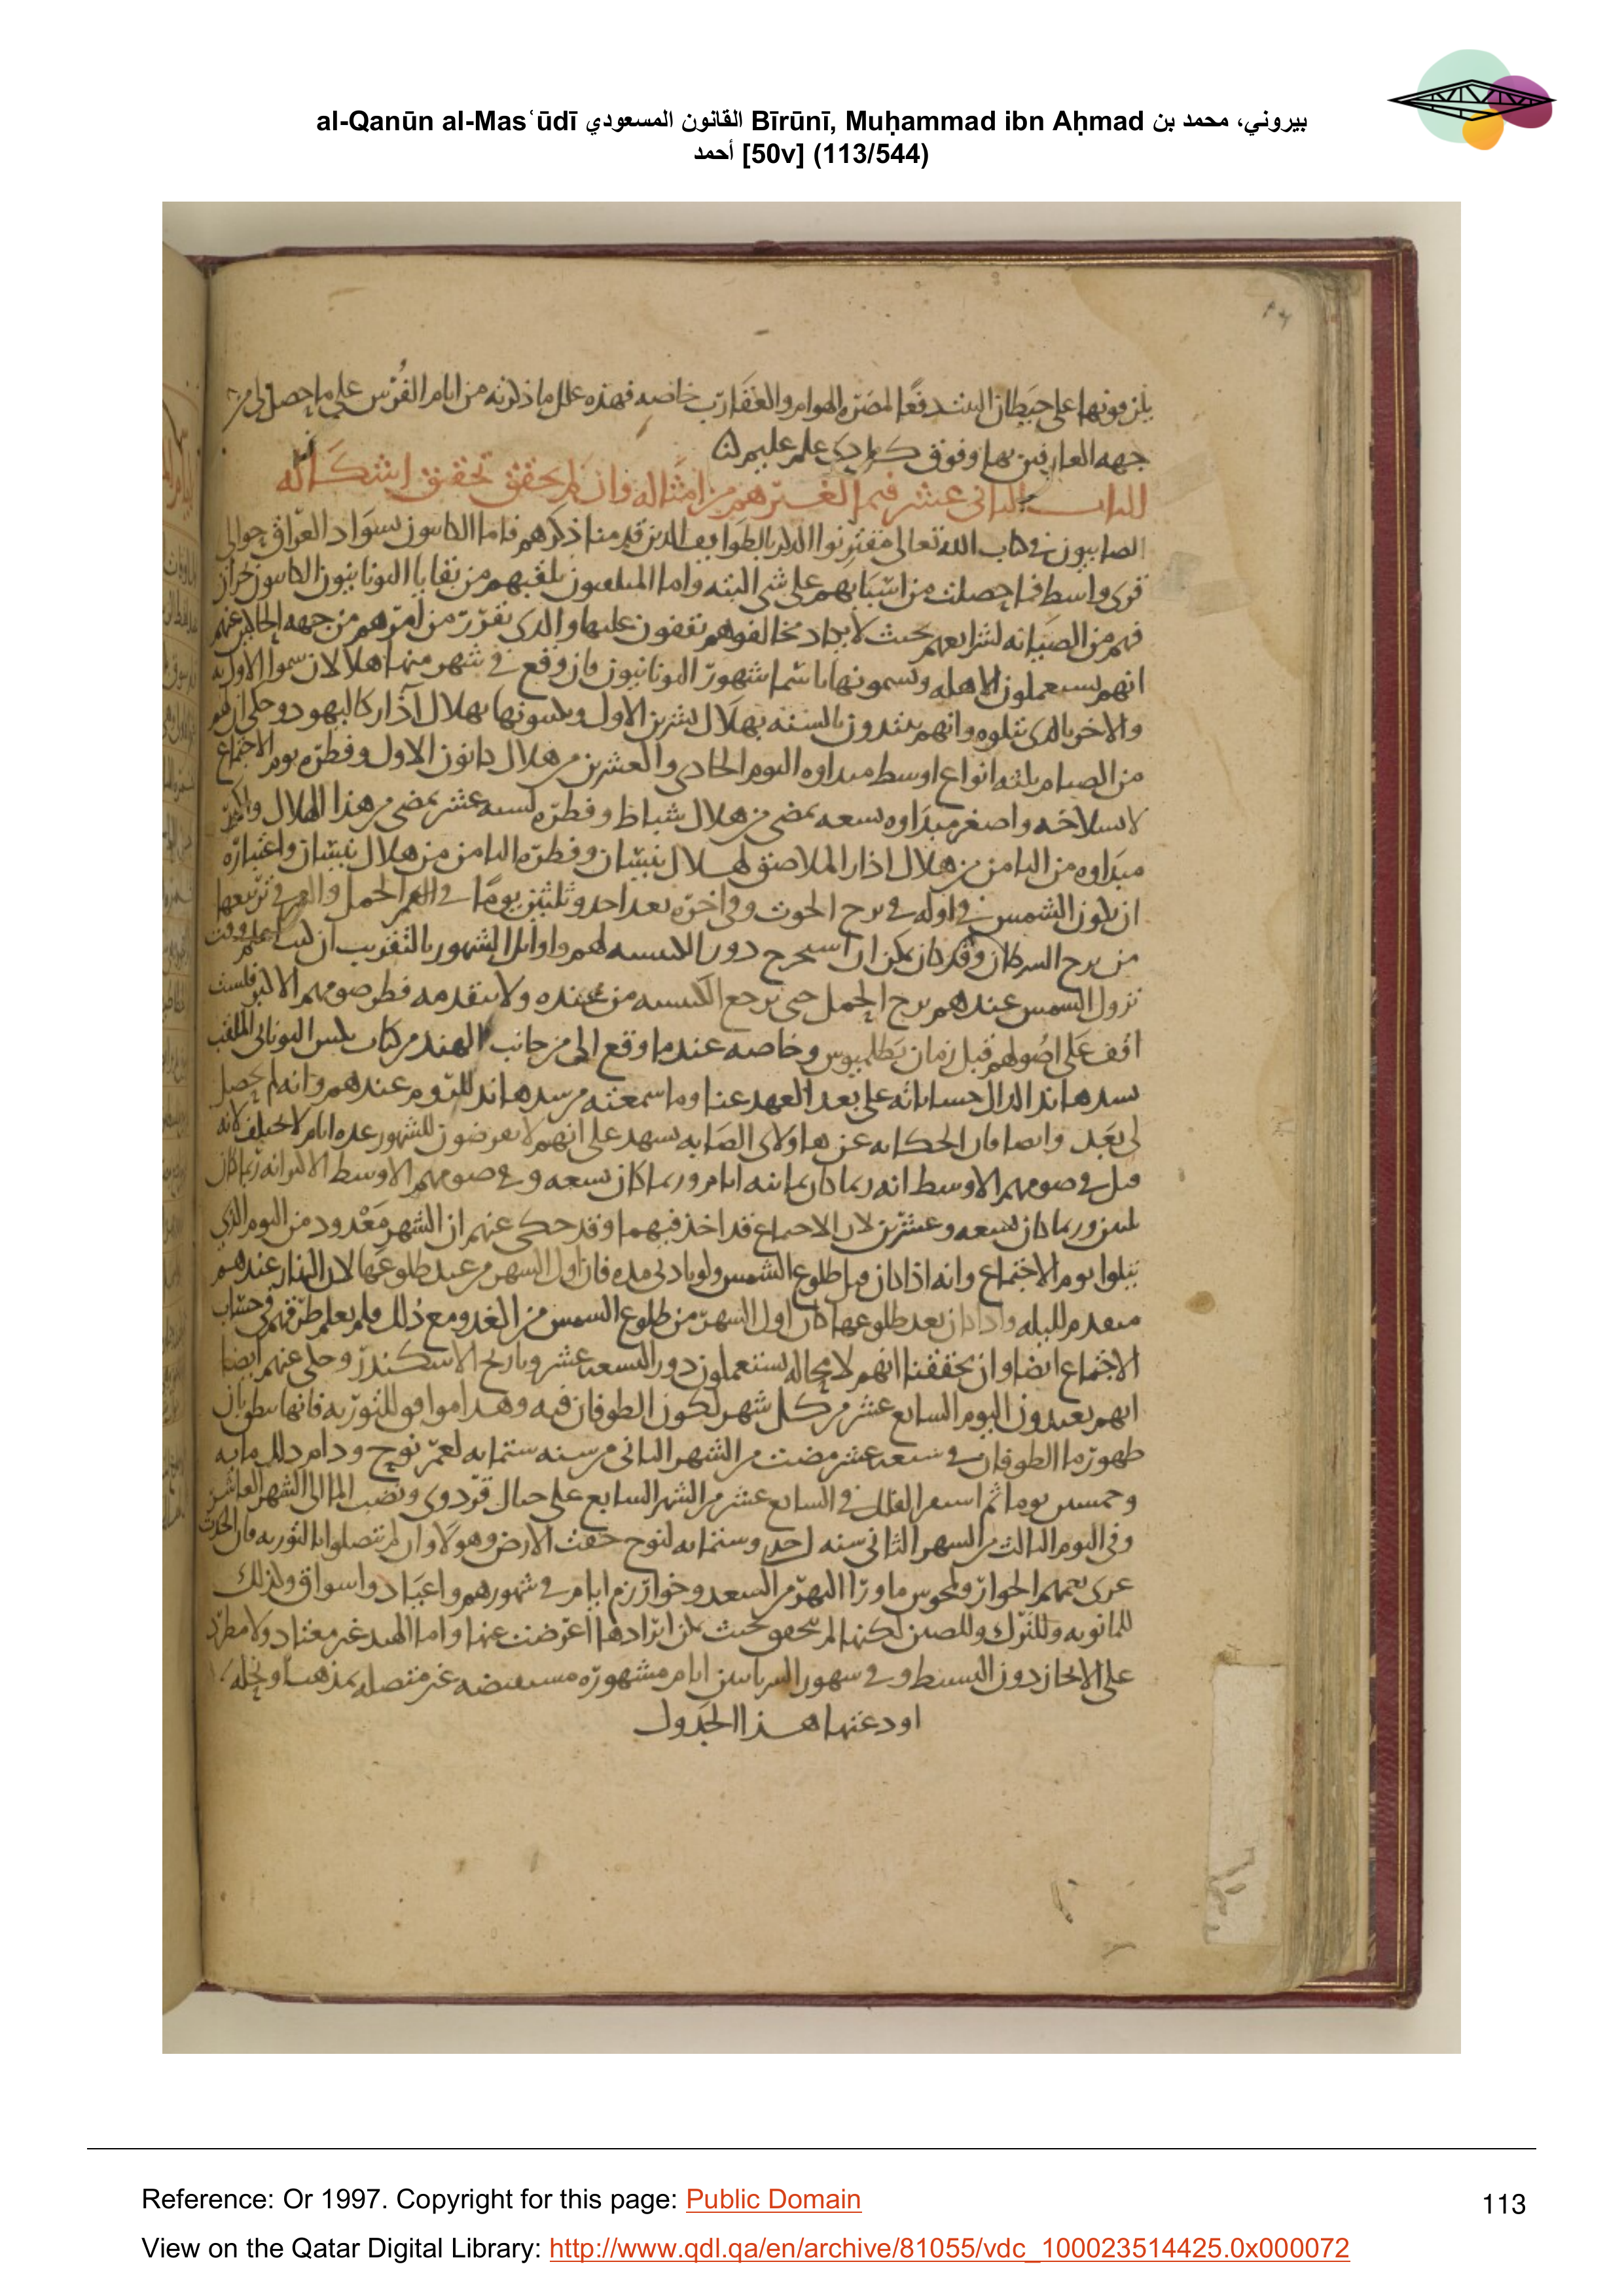 al-Qanūn al-Masʿūdī القانون المسعودي Bīrūnī, Muḥammad ibn Aḥmad بيروني، محمد بن
أحمد [50v] (113/544)
يلزقونها على حيطان البيت دفعًا لمضرة الهوام والعقارب خاصه فهذه علل ما ذكرته من ايام الفُرْس على ما حصل لى من
جهه العارفين بها وفوق كل ذى علم عليم
الباب الثانى عشر فيما لغيرهم من امثاله وان لم يحقق تحقيق اشكاله
الصابيون فى كتاب الله تعالى مقترنوا الذكر بالطوايف الذين قدمنا ذكرهم فاما الكاينون بسواد العراق حوالى
قرى واسط فما حصلت من اسبابهم على شى البته واما المتلقبون بلقبهم من بقايا اليونانيون الكاينون بحران
فهم من الصيانه لشرايعهم بحيث لا يكاد مخالفوهم يقفون عليها والذى تقرر من امرهم من جهه الحاكين عنهم
انهم يستعملون الاهله ويسمونها باسما شهور اليونانيون فان وقع فى شهر منها هلالان سموا الاول به
والاخر بالذى يتلوه وانهم يبتدون بالسنه بهلال تشرين الاول ويكبسونها بهلال آذار كاليهود وحكى ان لهم
من الصيام ثلثه انواع اوسط مبداوه اليوم الحادى والعشرين من هلال كانون الاول وفطره يوم الاجتماع
لانسلاخه واصغر مبداوه لتسعه تمضى من هلال شباط وفطره لسته عشر تمضى من هذا الهلال واكبر
مبداوه من الثامن من هلال اذار الملاصق لهلال نيسان وفطره الثامن من هلال نيسان واعتباره
ان يكون الشمس فى اوله فى برج الحوت وفى اخره بعد احد وثلثين يومًا فى الحمل والقمر فى تربيعها
من برج السرطان وقد كان يمكن ان استخرج دور الكبيسه لهم واوايل الشهور بالتقريب ان لست اعلم وقت
نزول الشمس عندهم برج الحمل حتى ترجع الكبيسه من عنده ولا يتقدمه فطر صومهم الاكبر فلست
اقف على اصولهم قبل زمان بطلميوس وخاصه عندما وقع الى من جانب الهند من كتاب بلس اليونانى الملقب
سدهاند الدال حساباته على بعد العهد عنا وما سمعته من سدهاند للروم عندهم وانه لم يحصل
لى بَعْد وايضا فان الحكايه عن هاولاى الصابه يشهد على انهم لا يعرضون للشهور عده ايام لا تختلف لانه
قيل فى صومهم الاوسط انه ربما كان ثمانيه ايام وربما كان تسعه وفى صومهم الاوسط الاكبر انه ربما كان
ثلثين وربما كان تسعه وعشرين لان الاجتماع قد اخذ فيهما وقد حكى عنهم ان الشهر مَعْدود من اليوم الذى
يتلوا يوم الاجتماع وانه اذا كان قبل طلوع الشمس ولو بادنى مده فان اول الشهر من عند طلوعها لان النهار عندهم
متقدم لليله واذا كان بعد طلوعها كان اول الشهر من طلوع الشمس من الغد ومع ذلك فلم يعلم طرقهم فى حساب
الاجتماع ايضا وان تحققنا انهم لا محاله يستعملون دور التسعه عشر وتاريخ الاسكندر وحكى عنهم ايضا
انهم يعيدون اليوم السابع عشر من كل شهر لكون الطوفان فيه وهذا موافق للتوريه فانها ينطق بان
ظهور ما الطوفان فى سبعه عشر مضت من الشهر الثانى من سنه ستمايه لعمر نوح ودام ذلك مايه
وخمسين يوما ثم استقر الفلك فى السابع عشر من الشهر السابع على جبال قردوى ونضب الما الى الشهر العاشر
وفى اليوم الثالث من الشهر الثانى سنه احد وستمايه لنوح جفت الارض وهولاء وان لم يتصلوا بالتوريه فان الحدث
عرى يعمهم الجوار ولمجوس ما ورا النهر من السغد وخوارزم ايام فى شهورهم واعياد واسواق وكذلك
للمانويه وللترك وللصين لكنها لم تتحقق بحيث يمكن ايرادها اعرضت عنها واما الهند غير معتاد ولا مطرد
على الايجاز دون البسط وفى شهور السريانيين ايام مشهوره مستفيضه غير متصله بمذهب ونحله
اودعتها هذا الجدول
Reference: Or 1997. Copyright for this page: Public Domain
113
View on the Qatar Digital Library: http://www.qdl.qa/en/archive/81055/vdc_100023514425.0x000072